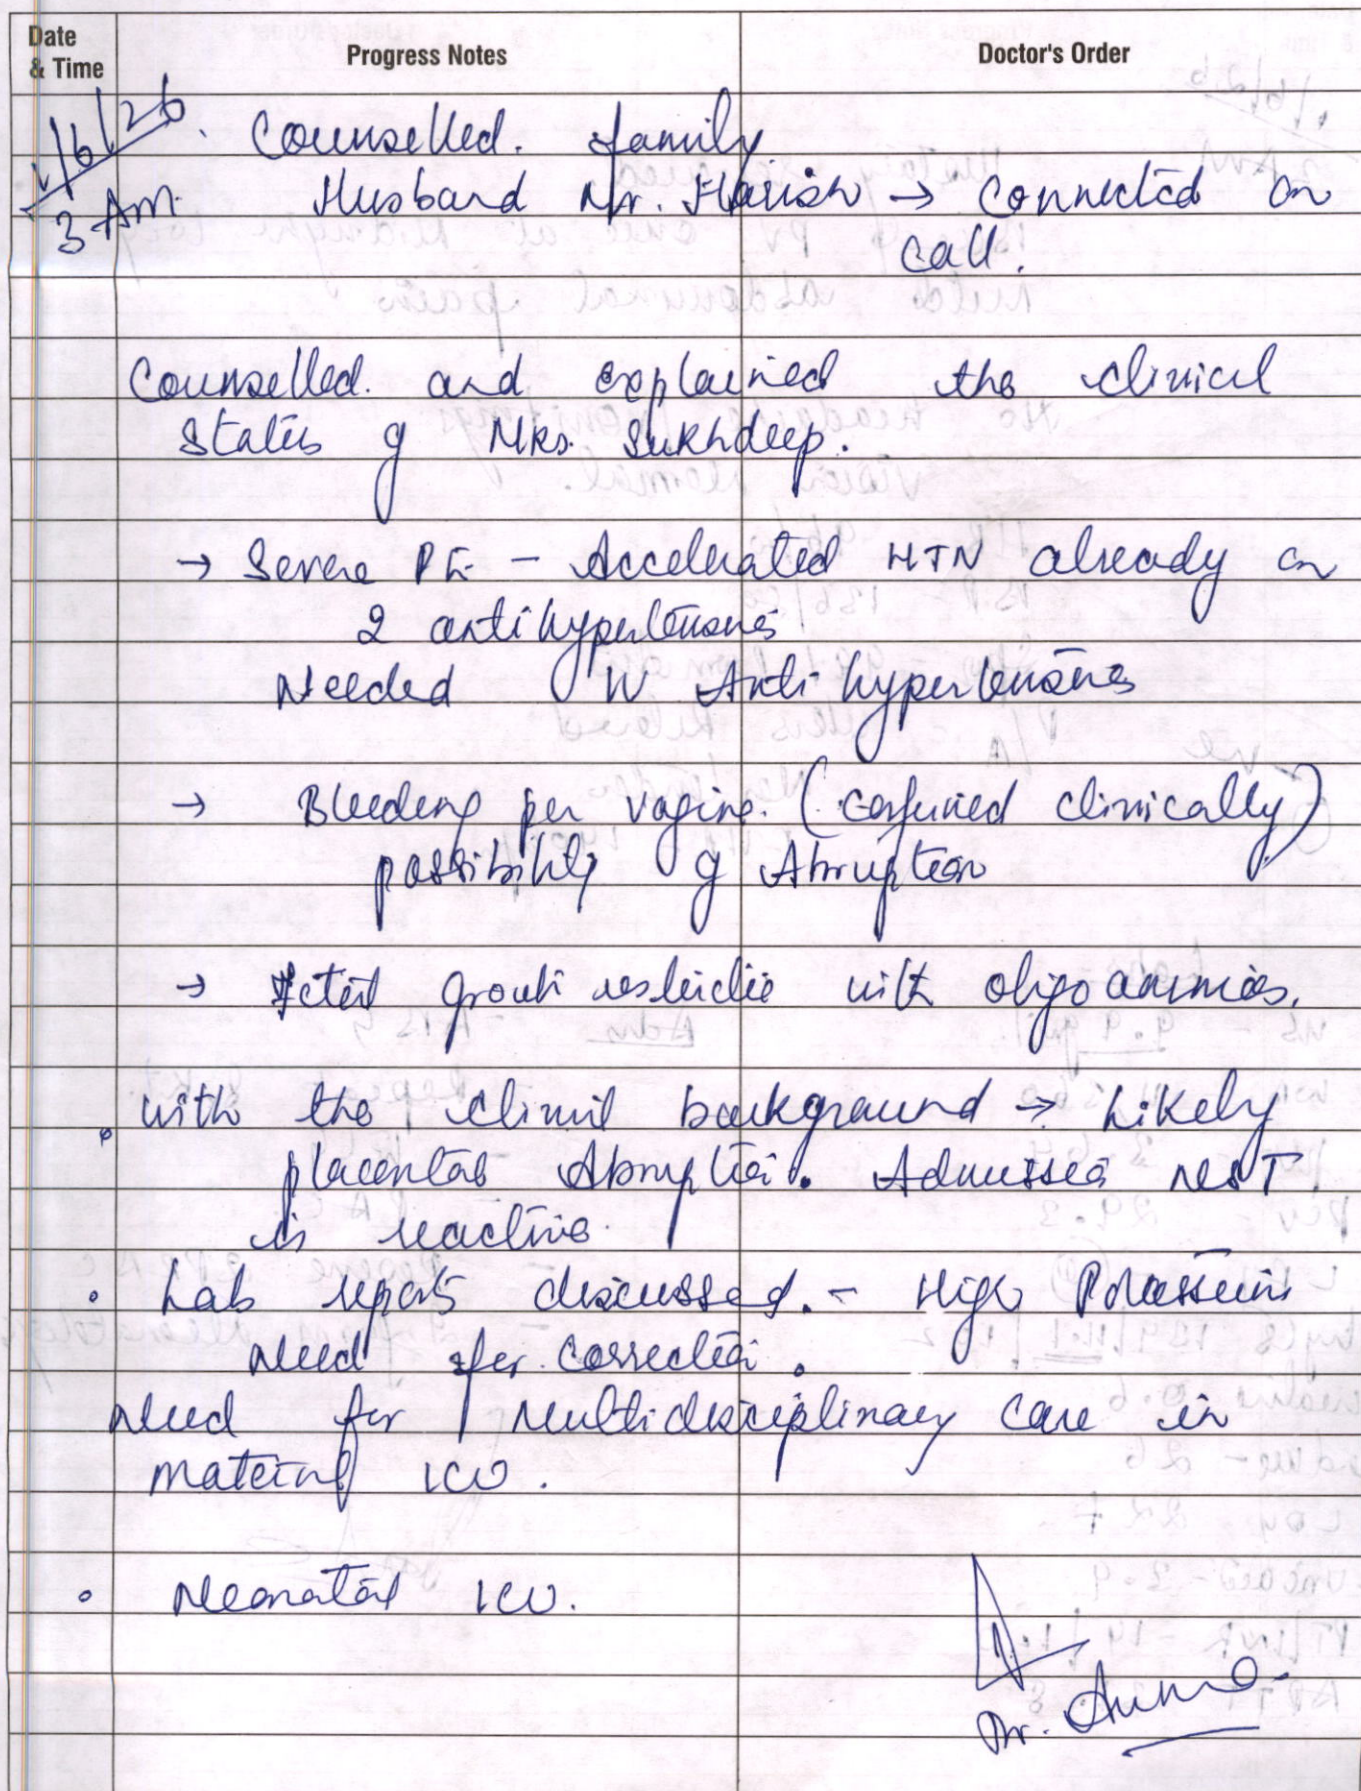 Date & Time
Progress Notes
Doctor's Order
1/6/26. Counselled. family
3 Am. Husband Mr. Harish → Connected on
call.
Counselled. and explained the clinical
status of Mrs. Sukhdeep.
→ Severe PE - Accelerated HTN already on
2 antihypertensives
Needed IV Antihypertensives
→ Bleeding per vagina. (confirmed clinically)
possibility of Abruption
→ Fetal growth restriction with oligoamnios.
• with the clinical background → Likely
placental Abruption. Admission NST
is reactive.
• Lab reports discussed. - High Potassium
need for correction.
Need for multidisciplinary care in
maternal ICU.
• Neonatal ICU.
Dr.